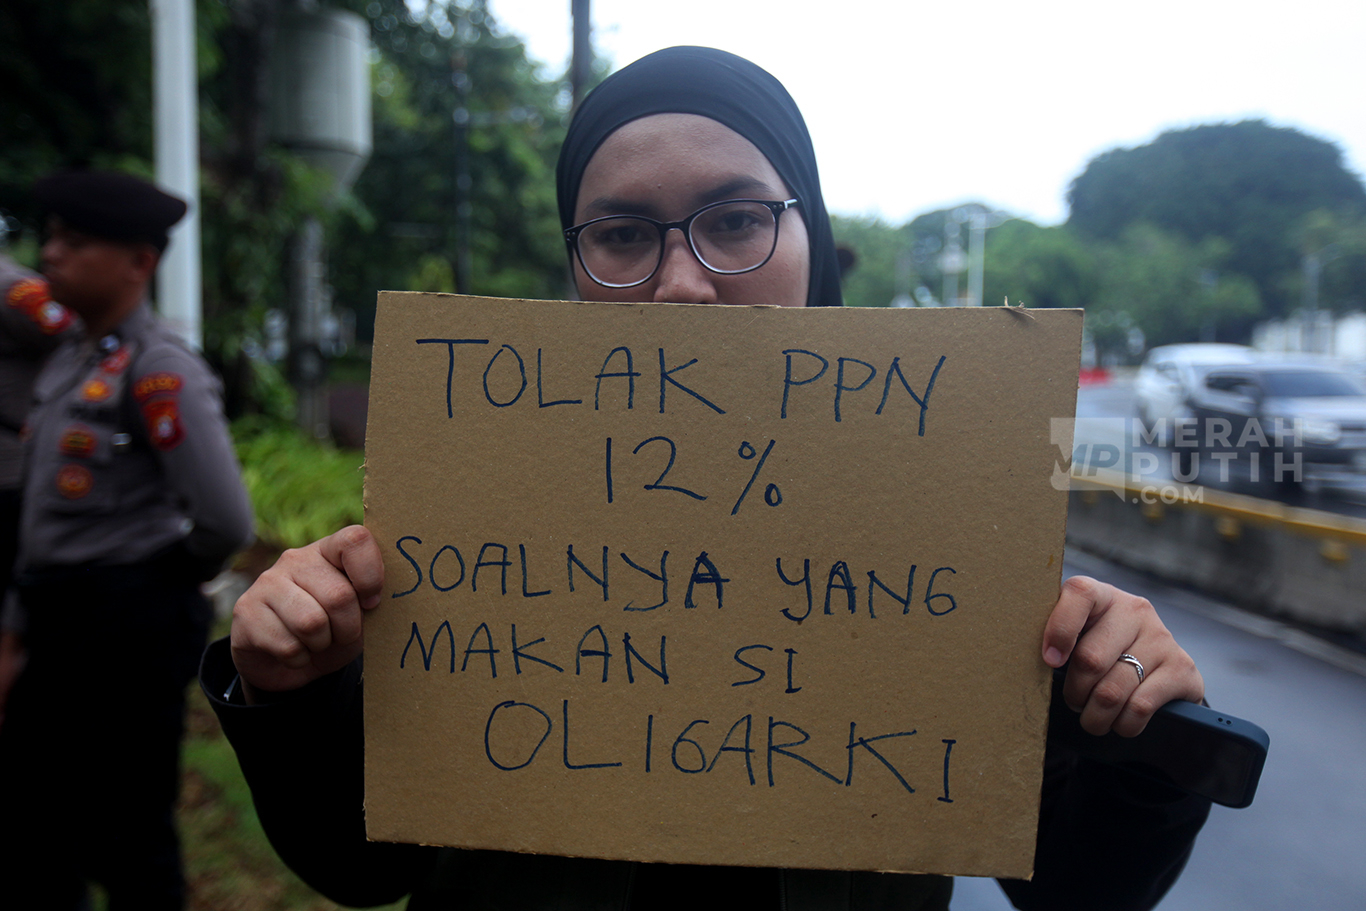 TOLAK PPN
12%
SOALNYA YANG
MAKAN SI
OLIGARKI
MP MERAH
PUTIH
.COM